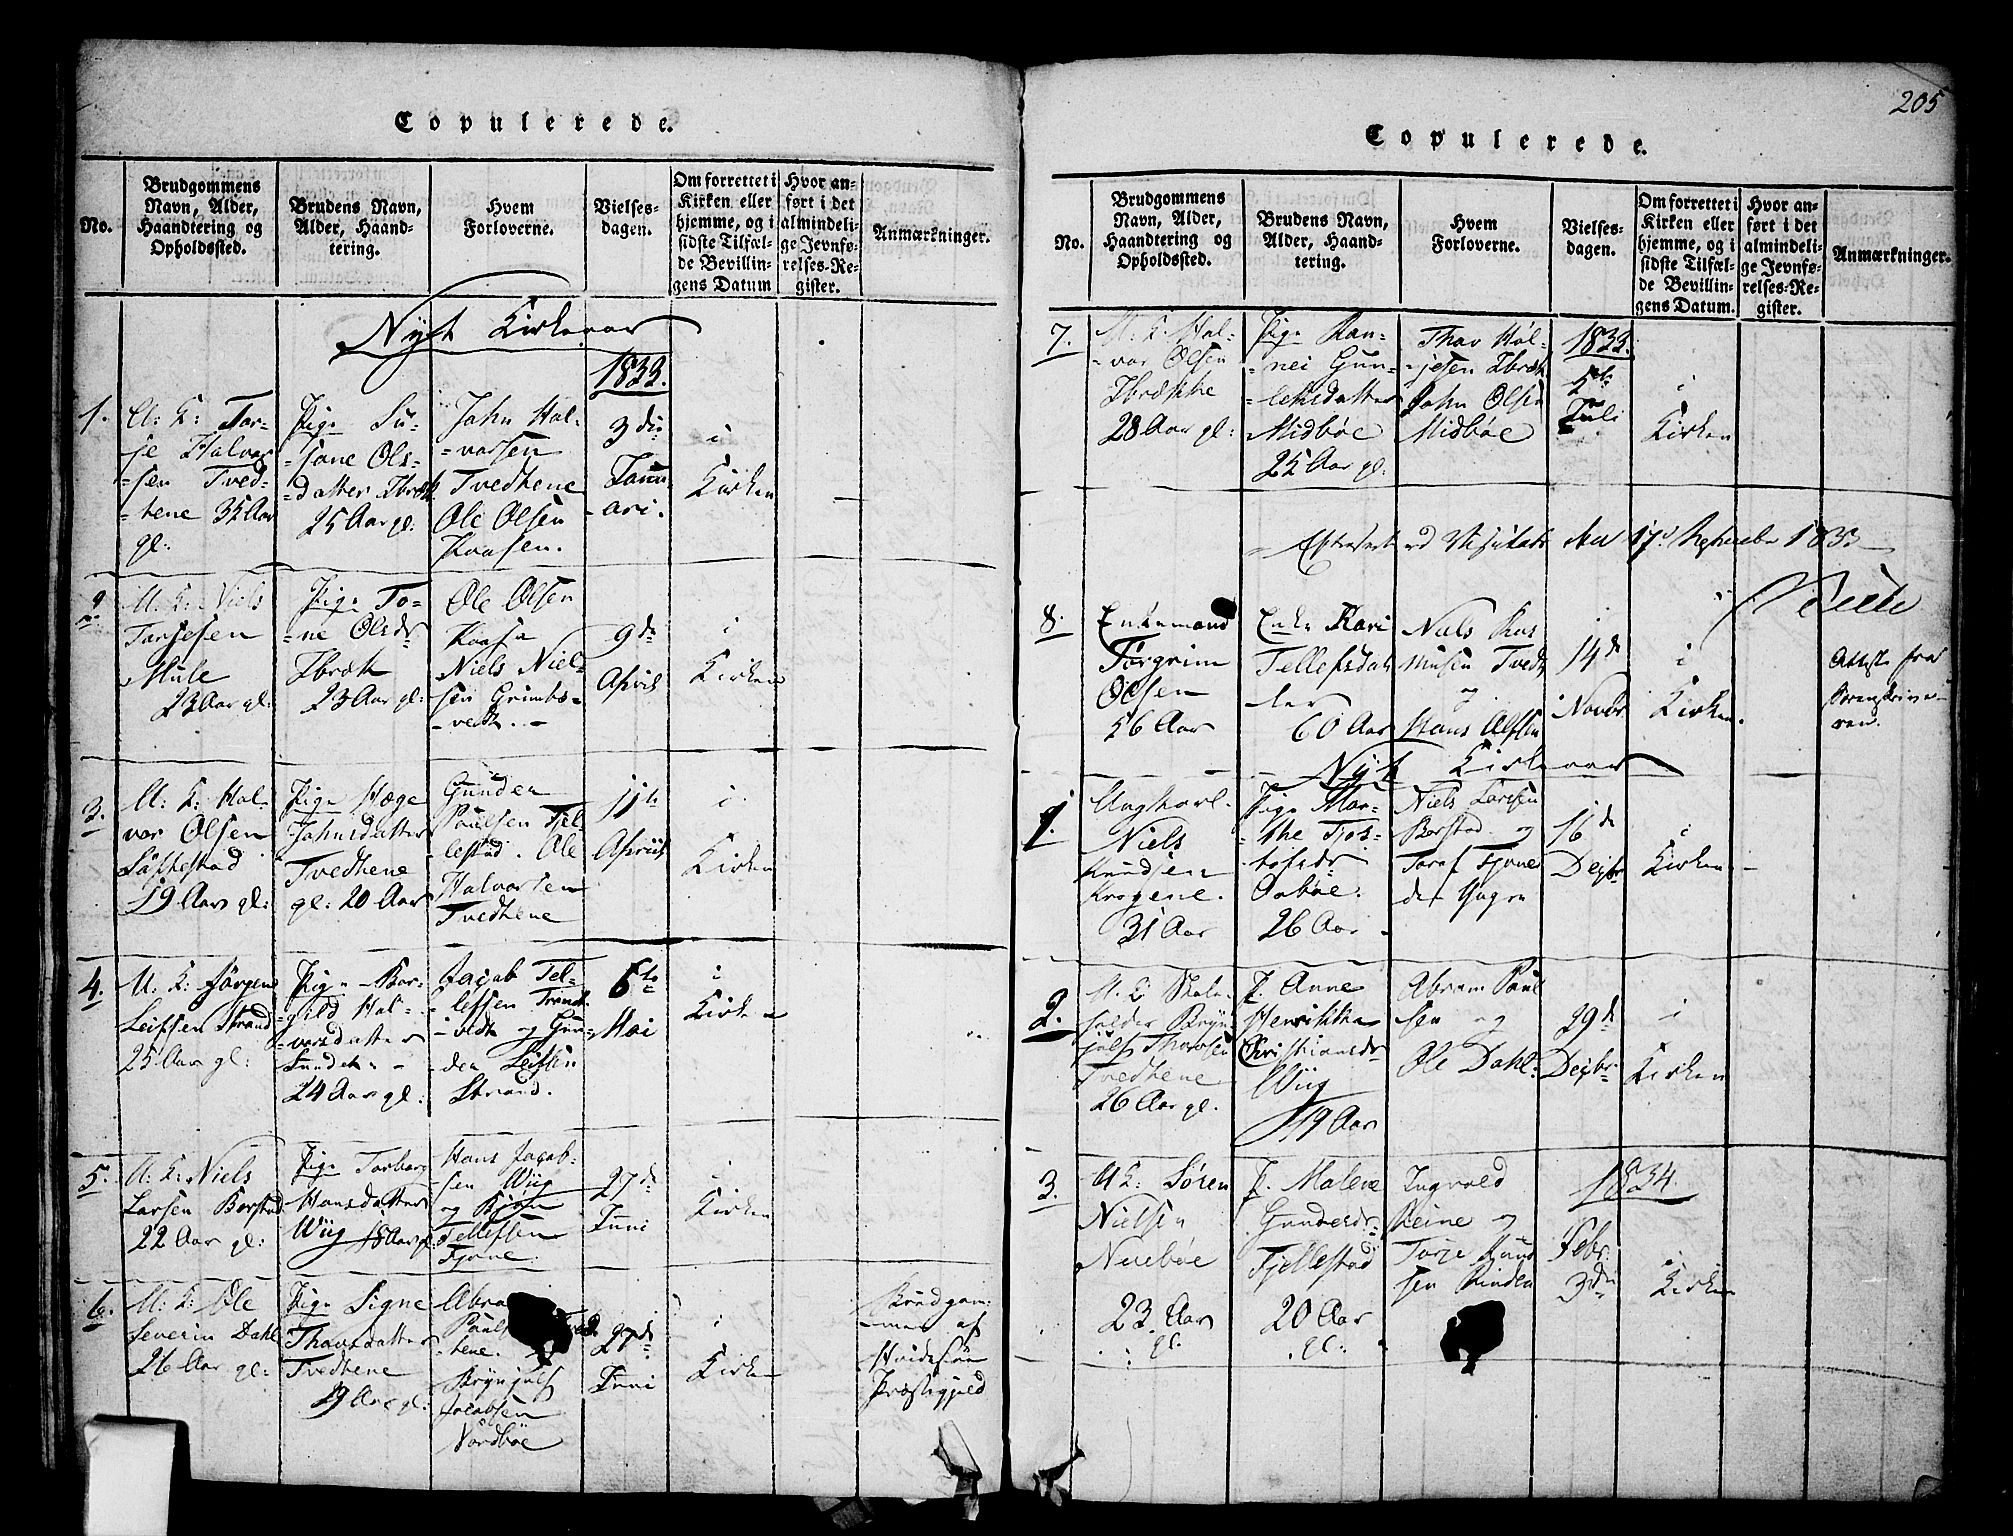 Copulerede.
No.
Brudgommens Navn, Alder, Haandtering og Opholdssted.
Brudens Navn, Alder, Haandtering.
Hvem Forloverne.
Vielsesdagen.
Om forrettet i Kirken eller hjemme, og i sidste Tilfælde Bevillingens Datum
Hvor anført i det almindelige Jevnførelses-Register.
Anmærkninger.
Nyt Kirkeaar
1833.
1.
U: K: Tor-
je Halvor-
-sen Tved-
-tene 35 Aar
gl:
Pige Su-
-sane Ols-
-datter Ibræk
25 Aar gl:
John Hal-
-vorsen
Tvedtene
Ole Olsen
Kaasen.
3die
Janu-
-ari.
i
Kirken
2
U: K: Niels
Torjesen
Mule
23 Aar gl:
Pige To-
-ne Olsdr
Ibræk
23 Aar gl:
Ole Olsen
Kaasa
Niels Niel-
sen Grimbs-
-vedt.
9de
April
i
Kirken
3.
U: K: Hal-
vor Olsen
19 Aar gl:
Pige Hæge
Johnsdatter
Tvedtene
gl: 20 Aar
Gunder
Paulsen Fjel-
-lestad. Ole
Halvorsen
Tvedtene
11te
April
i
Kirken
4.
U: K: Jørgen
Leifsen Strand
25 Aar gl:
Pige Bor-
-gild Hal-
-vorsdatter
24 Aar gl:
Jacob Tel-
-lefsen
og Gun-
der Leifsen
Strand.
6te
Mai
i
Kirken
5.
U: K: Niels
Larsen Borstad
22 Aar gl:
Pige Torborg
Hansdatter
Wiig 18 Aar gl:
Hans Jacob-
-sen Wiig
og Bjørn
Tellefsen
Tjone.
27de
Juni
i
Kirken
6.
U: K: Ole
Severin Dahl
26 Aar gl:
Pige Signe
Thorsdatter
Tvedtene
29 Aar gl:
Abra
Pauls
-tene.
Brynjulf
Jacobsen
Nordbøe
27de
Juni
i
Kirken
Brudgom-
-men af
Hvidesøe
Præstegjeld
205
Copulerede.
No.
Brudgommens Navn, Alder, Haandtering og Opholdssted.
Brudens Navn, Alder, Haandtering.
Hvem Forloverne.
Vielsesdagen.
Om forrettet i Kirken eller hjemme, og i sidste Tilfælde Bevillingens Datum.
Hvor anført i det almindelige Jevnførelses-Register.
Anmærkninger.
7.
U: K: Hal-
-vor Olsen
Ibrække
28 Aar gl:
Pige Ran-
-nei Gun-
-leksdatter
Midbøe
25 Aar gl:
Thor Hol-
-jesen Ibræk
John Olsen
Midbøe
1833.
5te
Juli
i
Kirken
Efterseet ved Visitats den 17de September 1833
8.
Enkemand
Torgrim
Olsen
56 Aar
Enke Kari
Tellefsdat-
ter
60 Aar
Niels Ras-
musen Tvedt
og
Hans Olsen
14de
Novbr.
i
Kirken.
Attest fra
Sorenskrive-
ren.
Nyt Kirkeaar
1.
Ungkarl
Niels
Knudsen
Krogene.
31 Aar
Pige Mar-
-the Tjos-
-tolfsdr
Aabøe.
26 Aar
Niels Larsen
Borstad og
Taraf Tjone
16de
Decbr
i
Kirken
2.
U. K. Skole-
holder Bryn-
julf Thorsen
Tvedtene
26 Aar gl.
P. Anne
Henrikka
Christiansdr
Wiig
19 Aar
Abram Paul
sen og
Ole Dahl.
29de
Decbr.
i
Kirken
3.
U: K: Søren
Nielsen
23 Aar
gl.
P. Malene
Gundersdr
Fjellestad
20 Aar
gl:
Ingvold
Reine og
Torje Knud
sen Rinden
1834.
Febr.
3die
i
Kirken